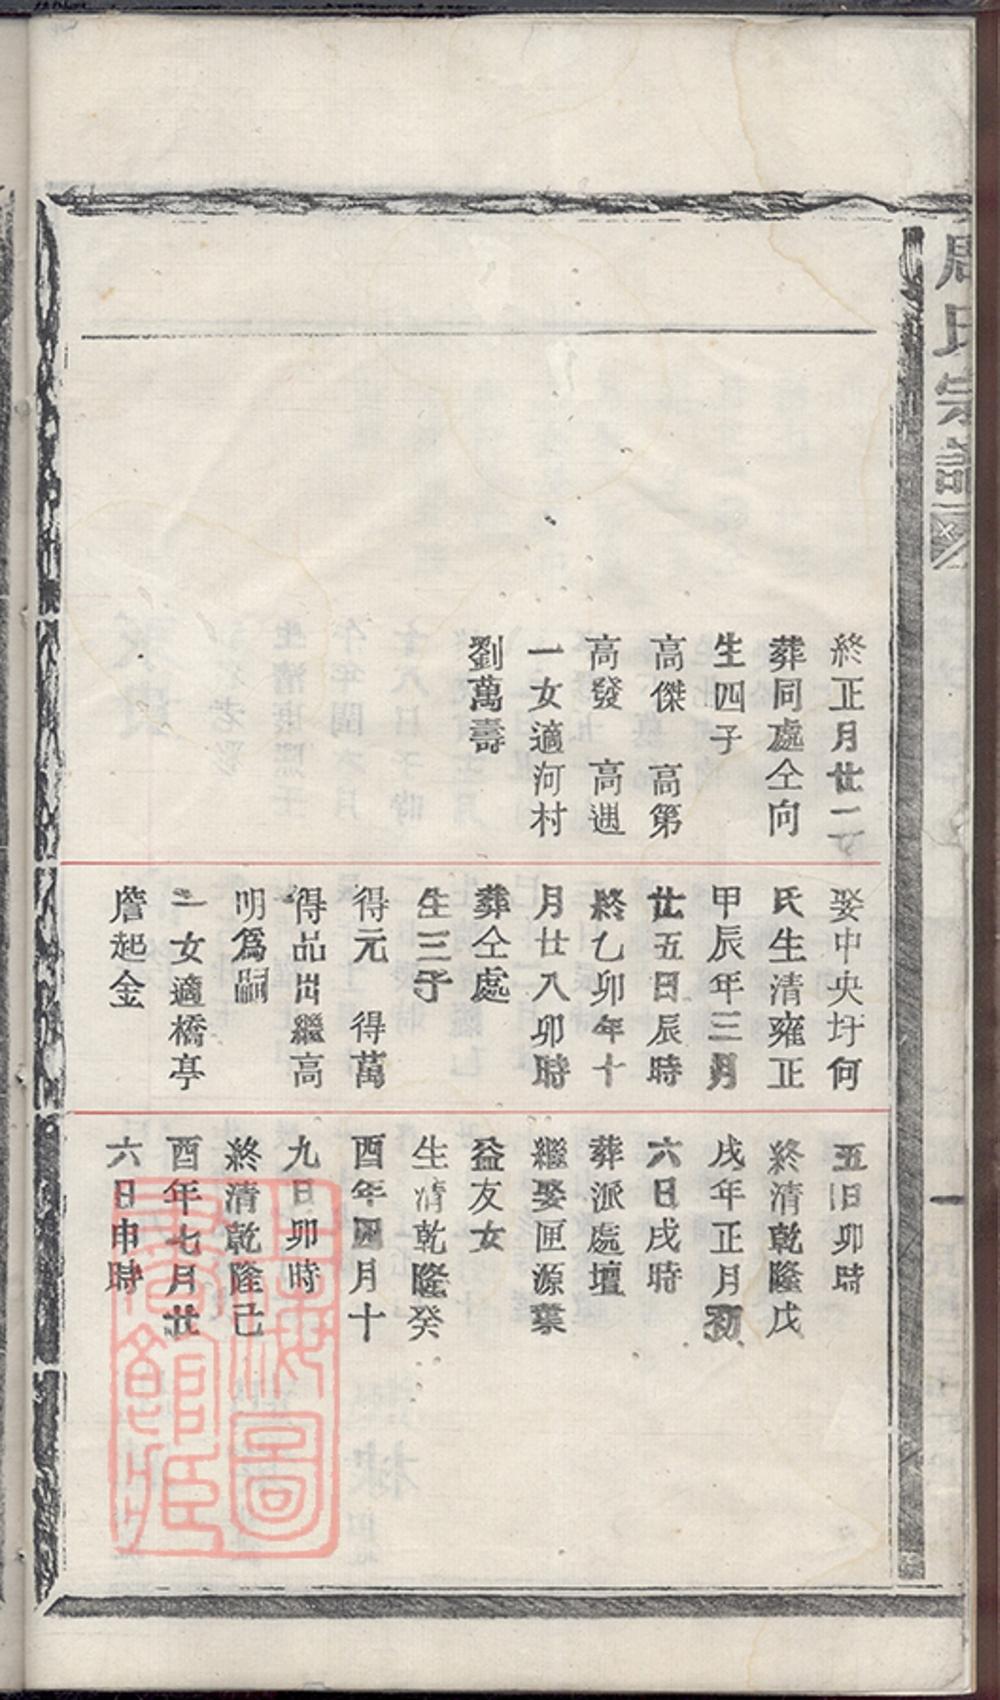 周氏宗譜
終正月廿一
葬同處仝向
生四子
高傑 高第
高發 高遇
一女適河村
劉萬壽
娶中央圩何
氏生清雍正
甲辰年三月
廿五日辰時
終乙卯年十
月廿八卯時
葬仝處
生三子
得元 得萬
得品出繼高
明爲嗣
二女適橋亭
詹起金
五日卯時
終清乾隆戊
戌年正月初
六日戌時
葬派處壇
繼娶匣源葉
益友女
生清乾隆癸
酉年四月十
九日卯時
終清乾隆己
酉年七月廿
六日申時
一
上海圖
書館藏